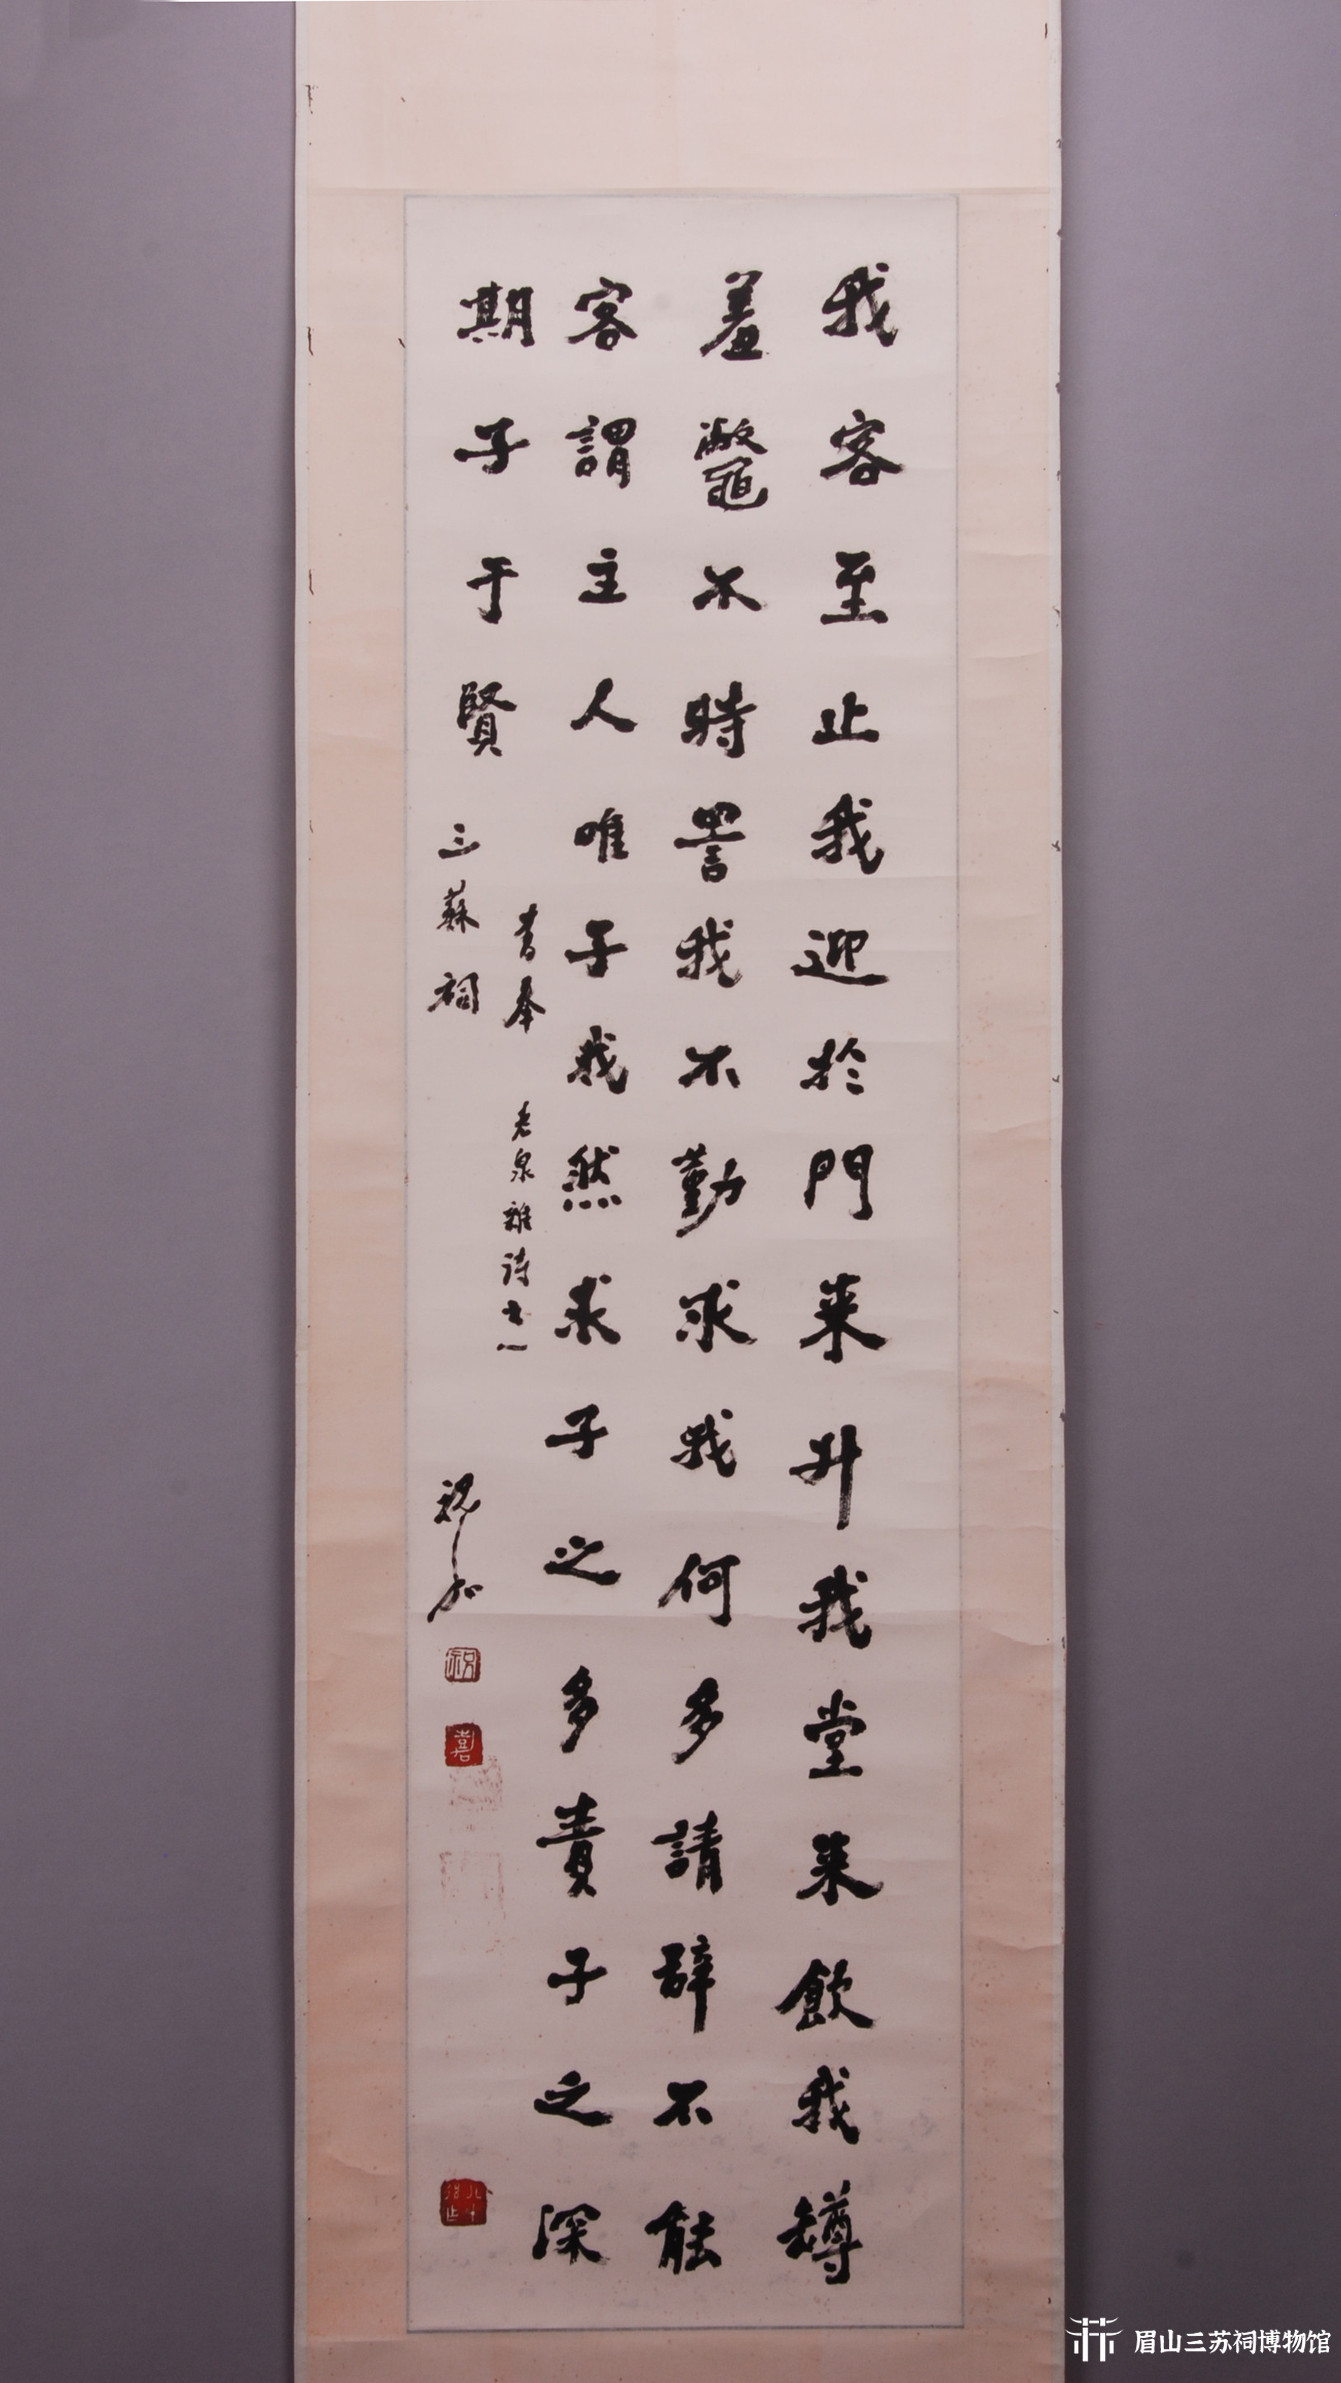 我客至止我迎於門来升我堂来飲我罇
羞鼈不時詈我不勤求我何多請辞不能
客謂主人唯子我然求子之多責子之深
期子于賢
書奉
三蘇祠
老泉雜诗之一
祝嘉
祝
嘉
眉山三苏祠博物馆